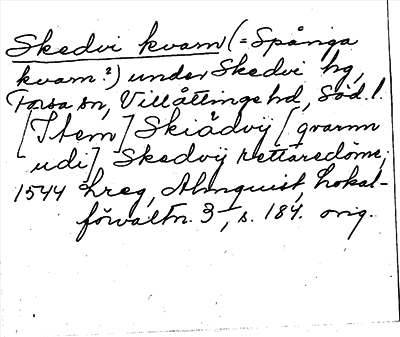 Skedvi kvarn (= Spånga
kvarn?) under Skedvi hg,
Forsa sn, Villåttinge hd, Söd. l.
[Item] Skiädvij [qvarnn
udi] Skedvij rettaredöme,
1544 hreg, Almquist, Lokal-
förvaltn. 3, s. 184. orig.